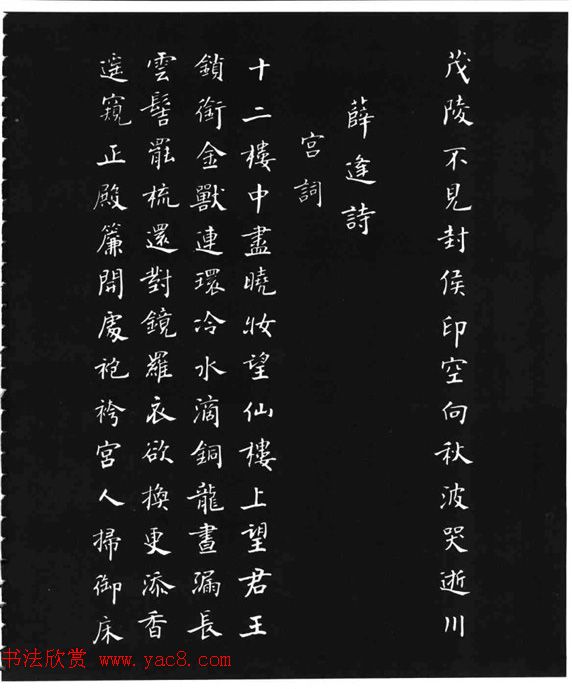 茂陵不見封侯印空向秋波哭逝川
薛逢詩
宮詞
十二樓中盡曉妝望仙樓上望君王
鎖銜金獸連環冷水滴銅龍晝漏長
雲髻罷梳還對鏡羅衣欲換更添香
遙窺正殿簾開處袍袴宮人掃御床
书法欣赏 www.yac8.com